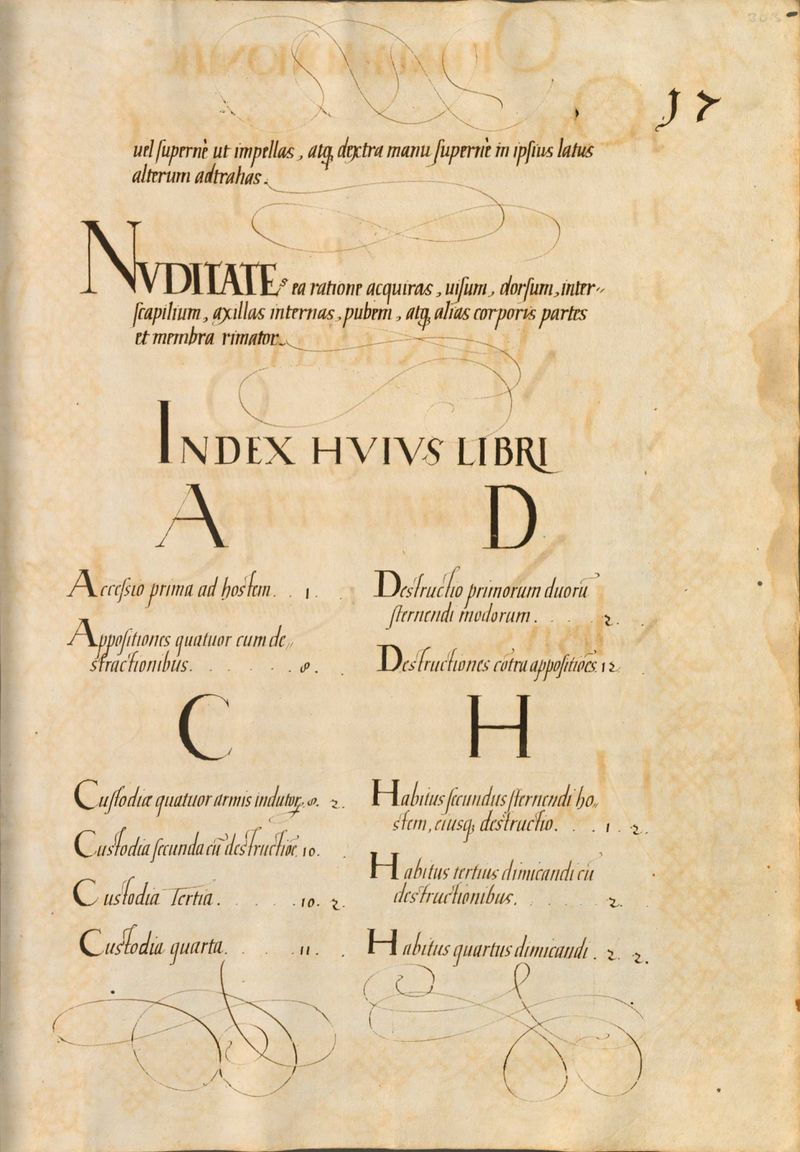 17
uel ſupernè ut impellas, atq, dextra manu ſupernè in ipſius latus
alterum adtrahas.
NVDITATEſ ea ratione acquiras, uiſum, dorſum, inter=
ſcapilium, axillas internas, pubem, atq, alias corporis partes
et membra rimator.
INDEX HVIVS LIBRI
A
Acceſsio prima ad hoſtem. . 1. .
Appoſitiones quatuor cum de=
ſtractionibus. . . . . . 9. .
C
Cuſtodiæ quatuor armis indutoꝝ. 9. 2.
Cuſtodia ſecunda cū deſtructiōe. 10. .
Cuſtodia Tertia. . . . . 10. 2.
Cuſtodia quarta. . . . 11. .
D
Deſtructio primorum duorū
ſternendi modorum. . . . . 2. .
Deſtructiones cōtra appoſitiōes. 12.
H
Habitus ſecundus ſternendi ho=
ſtem, eiusq, deſtructio. . . 1. 2.
Habitus tertius dimicandi cū
deſtructionibus. . . . . 2. .
Habitus quartus dimicandi. 2. 2.